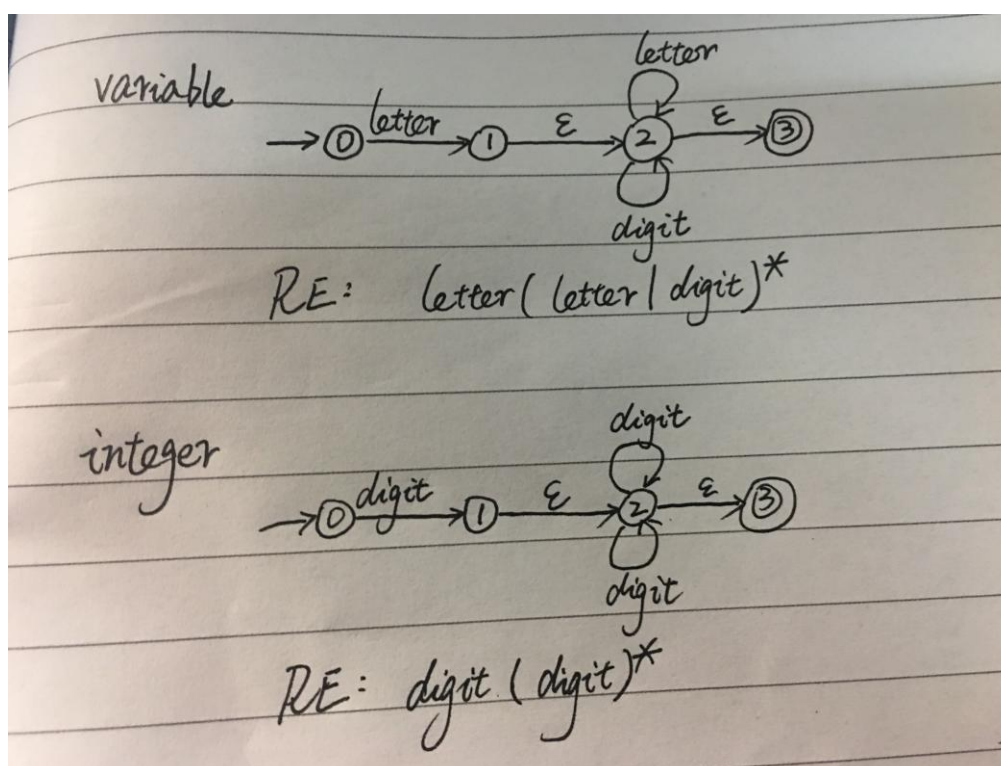 variable
letter
0 letter 1 ε 2 ε 3
digit
RE: letter(letter|digit)*
integer
digit
0 digit 1 ε 2 ε 3
digit
RE: digit(digit)*